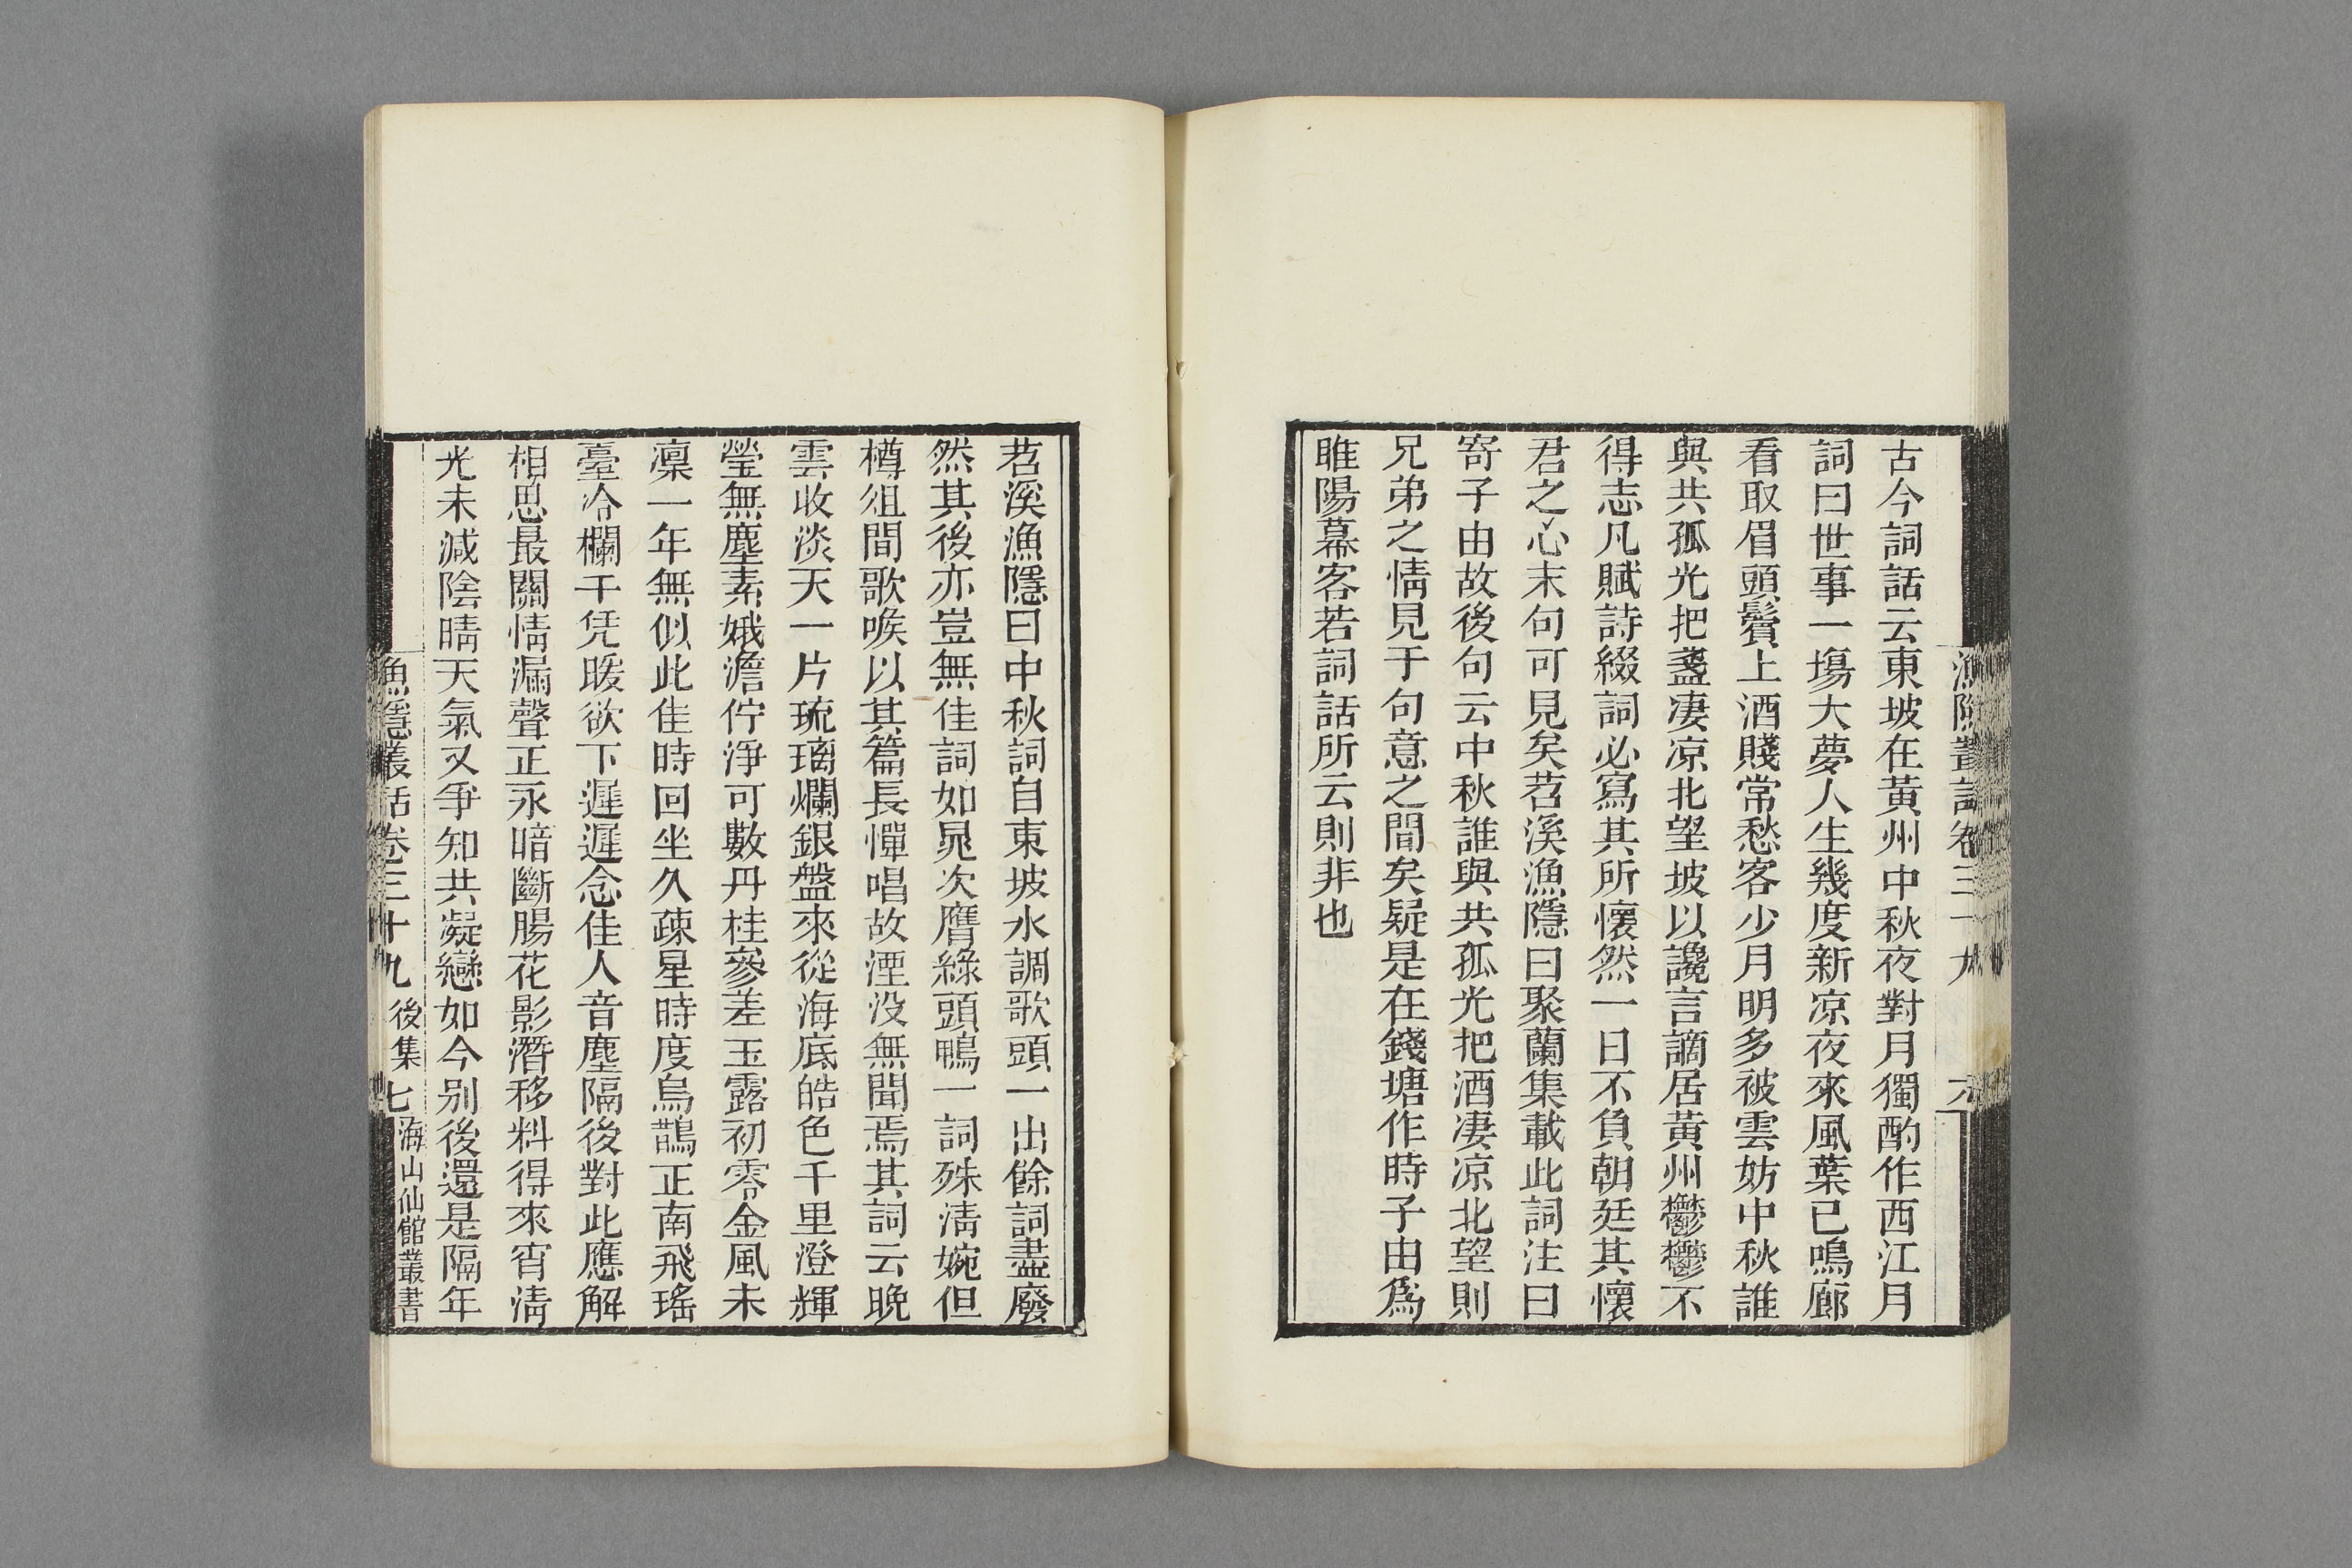 漁隱叢話卷三十九　六
古今詞話云東坡在黃州中秋夜對月獨酌作西江月
詞曰世事一塲大夢人生幾度新凉夜來風葉已鳴廊
看取眉頭鬢上酒賤常愁客少月明多被雲妨中秋誰
與共孤光把盞凄凉北望坡以讒言謫居黃州鬱鬱不
得志凡賦詩綴詞必寫其所懷然一日不負朝廷其懷
君之心末句可見矣苕溪漁隱曰聚蘭集載此詞注曰
寄子由故後句云中秋誰與共孤光把酒凄凉北望則
兄弟之情見于句意之間矣疑是在錢塘作時子由爲
睢陽幕客若詞話所云則非也
苕溪漁隱曰中秋詞自東坡水調歌頭一出餘詞盡廢
然其後亦豈無佳詞如晁次膺綠頭鴨一詞殊淸婉但
樽俎間歌喉以其篇長憚唱故湮没無聞焉其詞云晚
雲收淡天一片琉璃爛銀盤來從海底皓色千里澄輝
瑩無塵素娥澹佇淨可數丹桂參差玉露初零金風未
凜一年無似此佳時回坐久疎星時度烏鵲正南飛瑤
臺冷欄干凭暖欲下遲遲念佳人音塵隔後對此應解
相思最關情漏聲正永暗斷腸花影潛移料得來宵淸
光未減陰晴天氣又爭知共凝戀如今别後還是隔年
漁隱叢話卷三十九　後集　七　海山仙館叢書